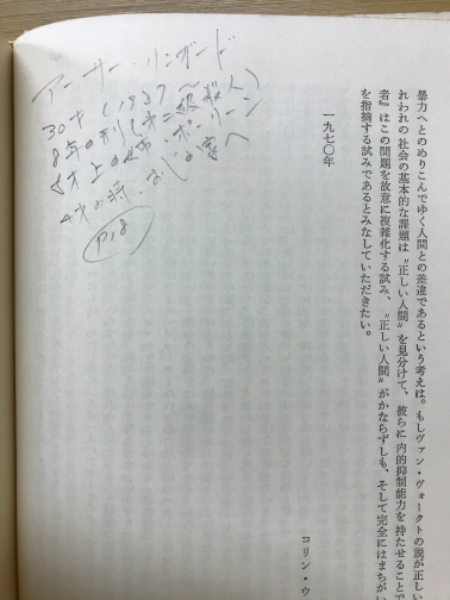 暴力へとのめりこんでゆく人間との差違であるという考えは。もしヴァン・ヴォークトの説が正しい
われわれの社会の基本的な課題は〝正しい人間〟を見分けて、彼らに内的抑制能力を持たせることで
者』はこの問題を故意に複雑化する試み、〝正しい人間〟がかならずしも、そして完全にはまちがい
を指摘する試みであるとみなしていただきたい。
一九七〇年
コリン・ウ
アーサー・リンガード
30才 (1937〜
8年の刑(第二級殺人)
8才上の姉・ポーリーン
4才の時、おじの家へ
P.18